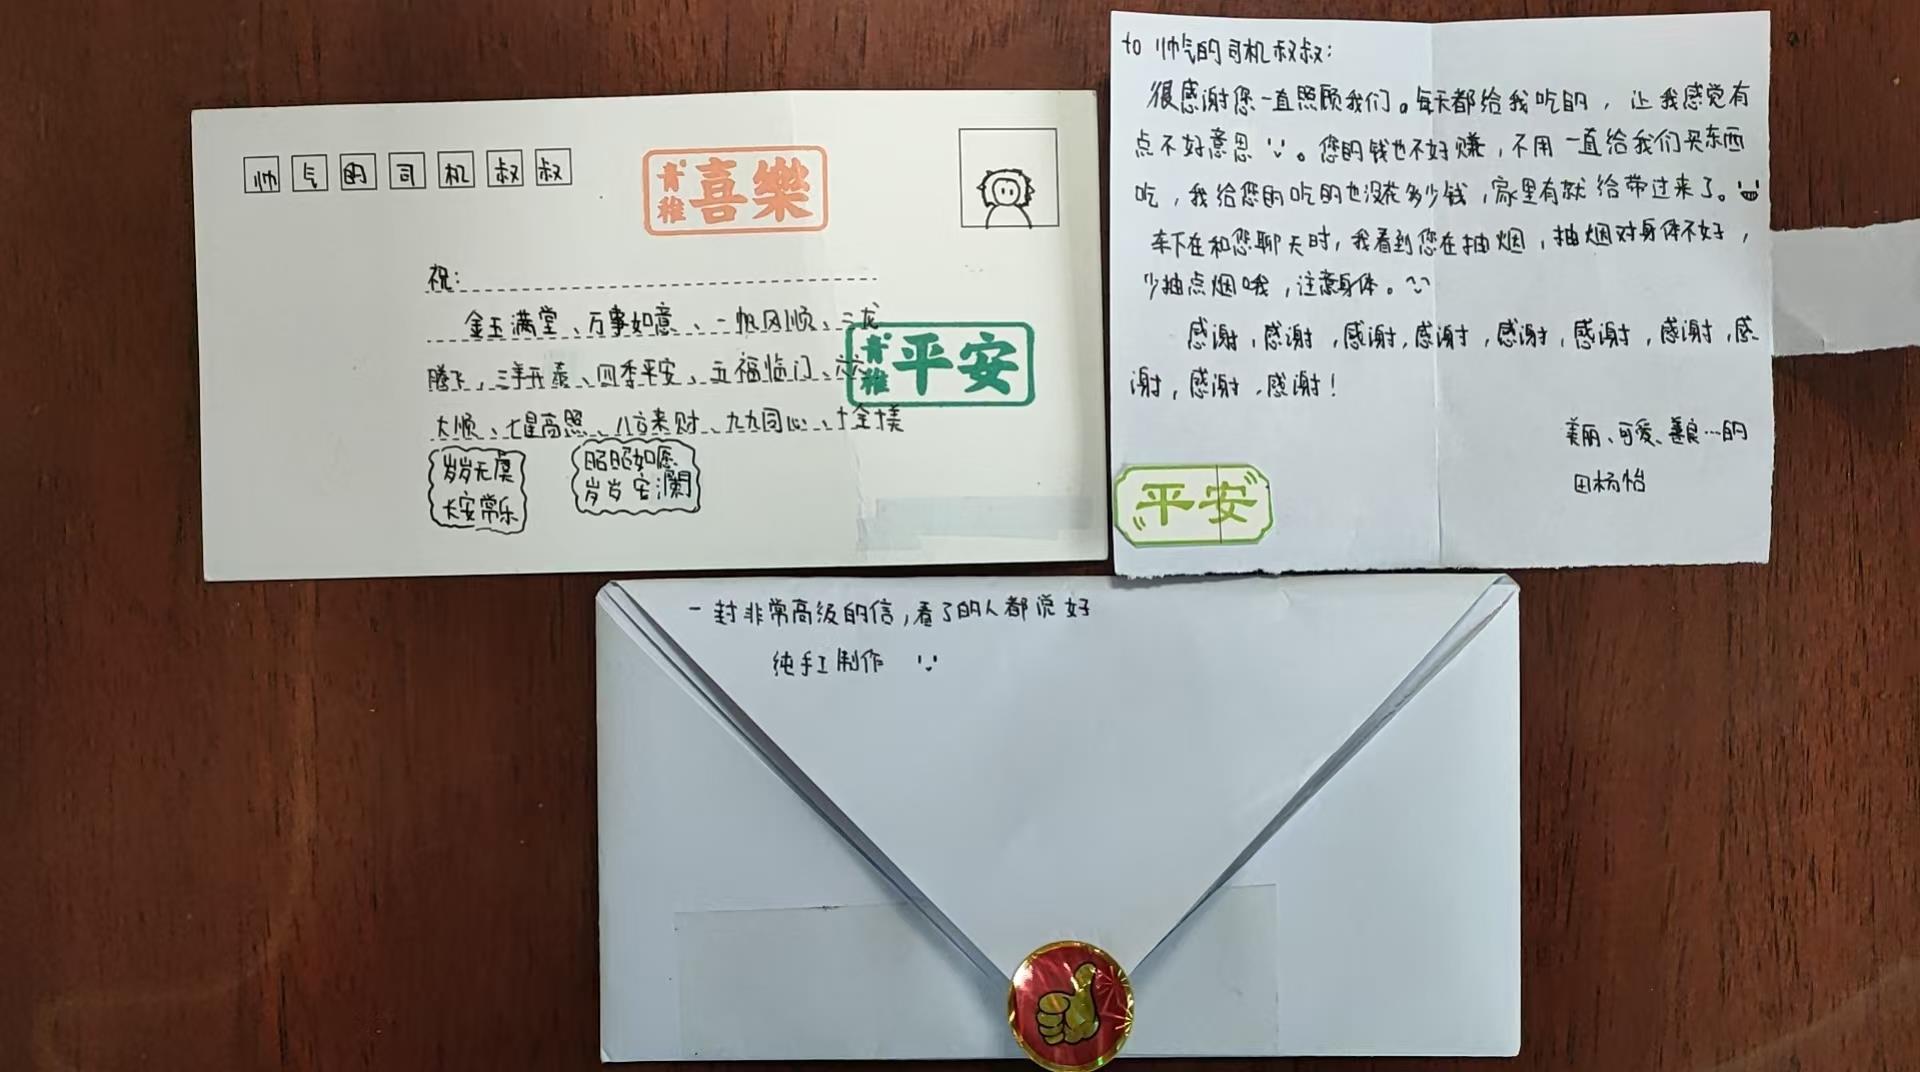 帅气的司机叔叔
青稚 喜樂
祝:
金玉满堂、万事如意、一帆风顺、二龙
腾飞、三羊开泰、四季平安、五福临门、六六
大顺、七星高照、八方来财、九九同心、十全十美
青稚 平安
岁岁无虞
长安常乐
昭昭如愿
岁岁安澜
to 帅气的司机叔叔:
很感谢您一直照顾我们。每天都给我吃的，让我感觉有
点不好意思。您的钱也不好赚，不用一直给我们买东西
吃，我给您的吃的也没花多少钱，家里有就给带过来了。
车下在和您聊天时，我看到您在抽烟，抽烟对身体不好，
少抽点烟哦，注意身体。
感谢，感谢，感谢，感谢，感谢，感谢，感谢，感
谢，感谢，感谢！
美丽、可爱、善良…的
田杨怡
平安
一封非常高级的信，看了的人都说好
纯手工制作